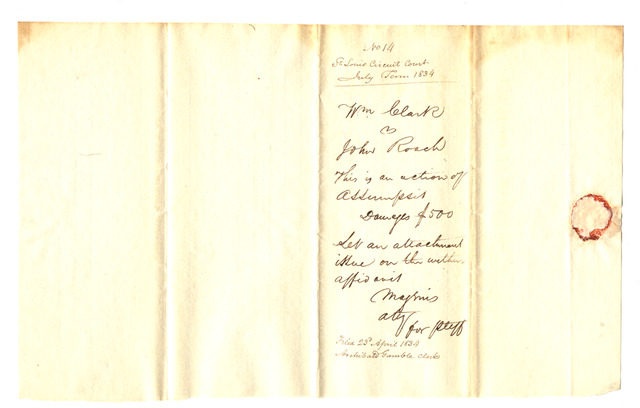 No 14
St Louis Circuit Court
July Term 1834
Wm Clark
vs
John Roach
This is an action of
Assumpsit
Damages $500
Let an attachment
issue on the within
affidavit
atty
for Pltff
Filed 23d April 1834
Archibald Gamble Clerk